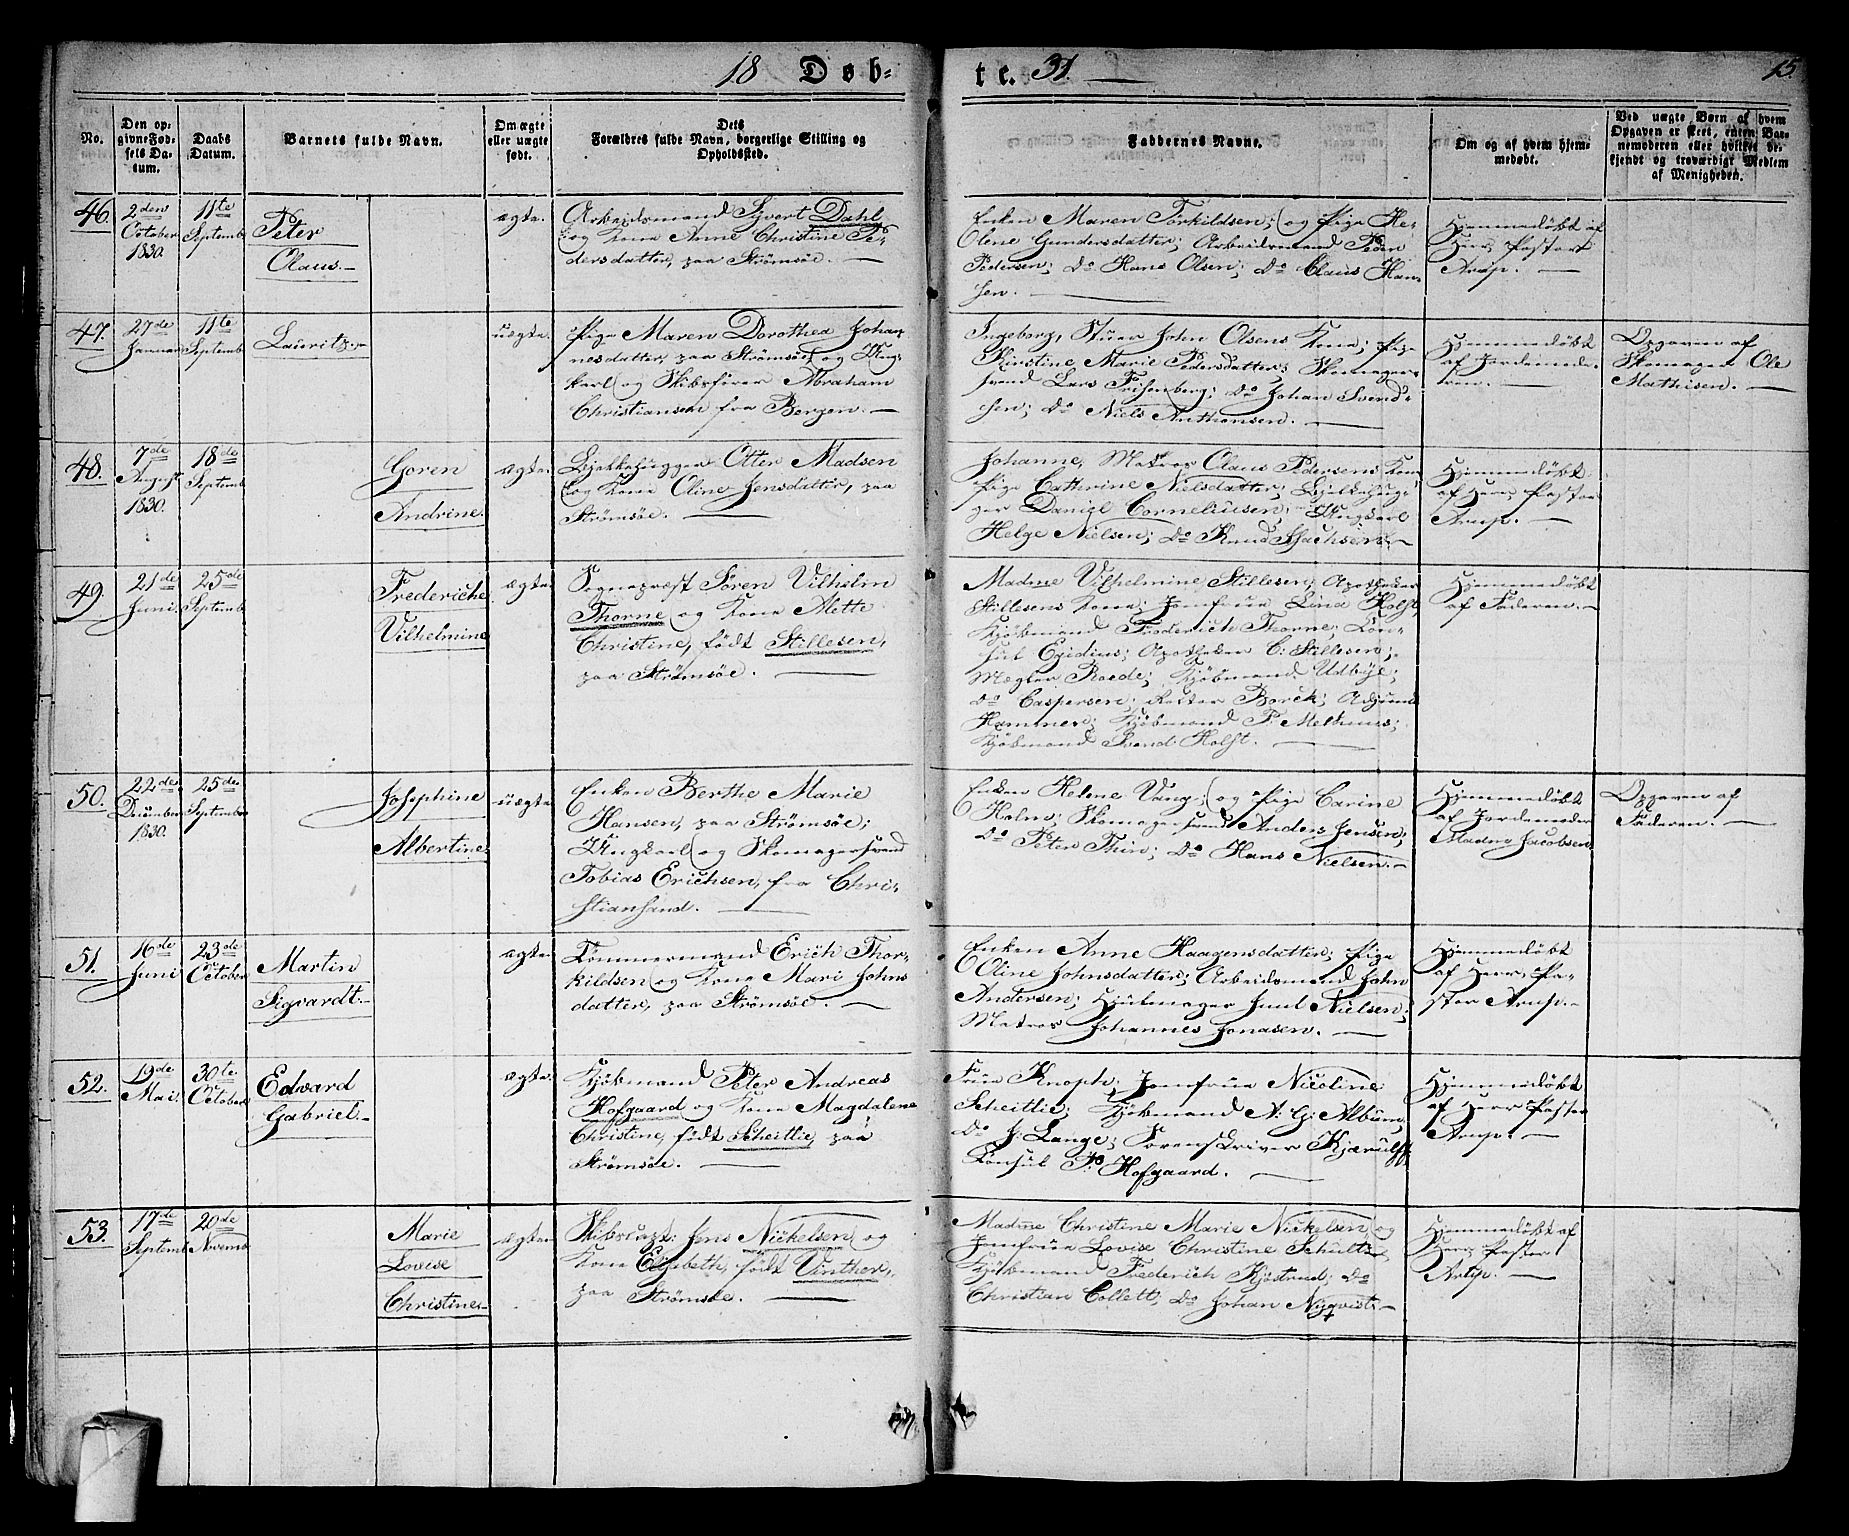 18 Døb-
te. 31.
15.
No.
Den op-
givne Fød-
sels Da-
tum.
Daabs
Datum.
Barnets fulde Navn.
Om ægte
eller uægte
født.
Dets
Forældres fulde Navn, borgerlige Stilling og
Opholdssted.
Faddernes Navne.
Om og af hvem hjem-
medøbt.
Ved uægte Børn af hvem
Opgaven er skeet, enten Bar-
nemoderen eller hvilket be-
kjendt og troværdigt Medlem
af Menigheden.
46.
2den
October
1830.
11te
Septemb
Peter
Claus.
ægte.
Arbeidsmand Syvert Dahl
og Kone Anne Christine Pe-
dersdatter, paa Strømsøe.
Enken Maren Torkildsen; og Pige He-
lene Gundersdatter; Arbeidsmand Peder
Pedersen; Do Hans Olsen; Do Claus Han-
sen.
Hjemmedøbt af
Herr Pastor
Arup.
47.
27de
Januar
11te
Septemb
Lauritz.
uægte.
Pige Maren Dorothea Johan
nesdatter, paa Strømsøe, og Ung-
karl og Skibsfører Abraham
Christiansen fra Bergen.
Ingeborg, Stuer John Olsens Kone; Pige
Kirstine Marie Pedersdatter; Skomager-
svend Lars Frisenberg; Do Johan Svend-
sen; Do Niels Anthonsen.
Hjemmedøbt
af Jordemode-
ren.
Opgaven af
Skomager Ole
Mathisen.
48.
7de
August
1830.
18de
Septemb
Goren
Andrine.
ægte.
Bjelkehugger Otter Madsen
og Kone Oline Jensdatter, paa
Strømsøe.
Johanne, Matros Claus Pedersens Kone
Pige Cathrine Nielsdatter; Bjelkehug-
ger Daniel Corneliusen; Ungkarl
Helge Nielsen; Do Knud Isachsen.
Hjemmedøbt
af Herr Pastor
Arup.
49.
21de
Juni.
25de
Septemb
Frederiche
Vilhelmine
ægte.
Sognepræst Søren Vilhelm
Thorne og Kone Mette
Christine, født Stillesen,
paa Strømsøe.
Madme Vilhelmine Stillesen, Apotheker
Stillesens Kone; Jomfrue Lina Holst,
Kjøbmand Frederich Thorne; Con-
sul Egidius; Apotheker C: Stillesen;
Megler Roede; Kjøbmand Udbye;
Do Caspersen; Rector Borck; Adjunct
Hammer; Kjøbmand F. Melhuus;
Kjøbmand Svend Holst.
Hjemmedøbt
af Faderen.
50.
22de
December
1830.
25de
Septemb
Josephine
Albertine.
uægte
Enken Berthe Marie
Hansen, paa Strømsøe;
Ungkarl og Skomagersvend
Tobias Erichsen, fra Chri-
stiansand.
Enken Helene Vang; og Pige Carine
Holm; Skomagersvend Anders Jensen;
Do Peter Thin; Do Hans Nielsen.
Hjemmedøbt
af Jordemoder
Madme Jacobsen
Opgaven af
Faderen.
51.
16de
Juni
23de
October
Martin
Sigvardt.
ægte.
Tømmermand Erich Thor-
kildsen og Kone Mari Johns
datter, paa Strømsøe.
Enken Anne Haagensdatter; Pige
Oline Johnsdatter; Arbeidsmand John
Andersen; Hjulmager Juul Nielsen;
Matros Johannes Jonasen.
Hjemmedøbt
af Herr Pa-
stor Arup.
52.
19de
Mai.
30te
October
Edvard
Gabriel.
ægte.
Kjøbmand Peter Andreas
Hofgaard og Kone Magdalene
Christine, født Scheitlie, paa
Strømsøe.
Frue Knoph; Jomfrue Nicoline
Scheitlie; Kjøbmand N: G: Album;
Do J. Lange; Sorenskriver Kjerulff,
Consul P: Hofgaard.
Hjemmedøbt
af Herr Pastor
Arup.
53.
17de
Septemb
20de
Novemb
Marie
Lovise
Christine.
ægte.
Skibscapt: Jens Nickelsen og
Kone Elisabeth, født Vinther,
paa Strømsøe.
Madme Christine Marie Nickelsen, og
Jomfrue Lovise Christine Schultz,
Kjøbmand Frederich Kjøstrud; Do
Christian Collett; Do Johan Nyqvist.
Hjemmedøbt af
Herr Pastor
Arup.